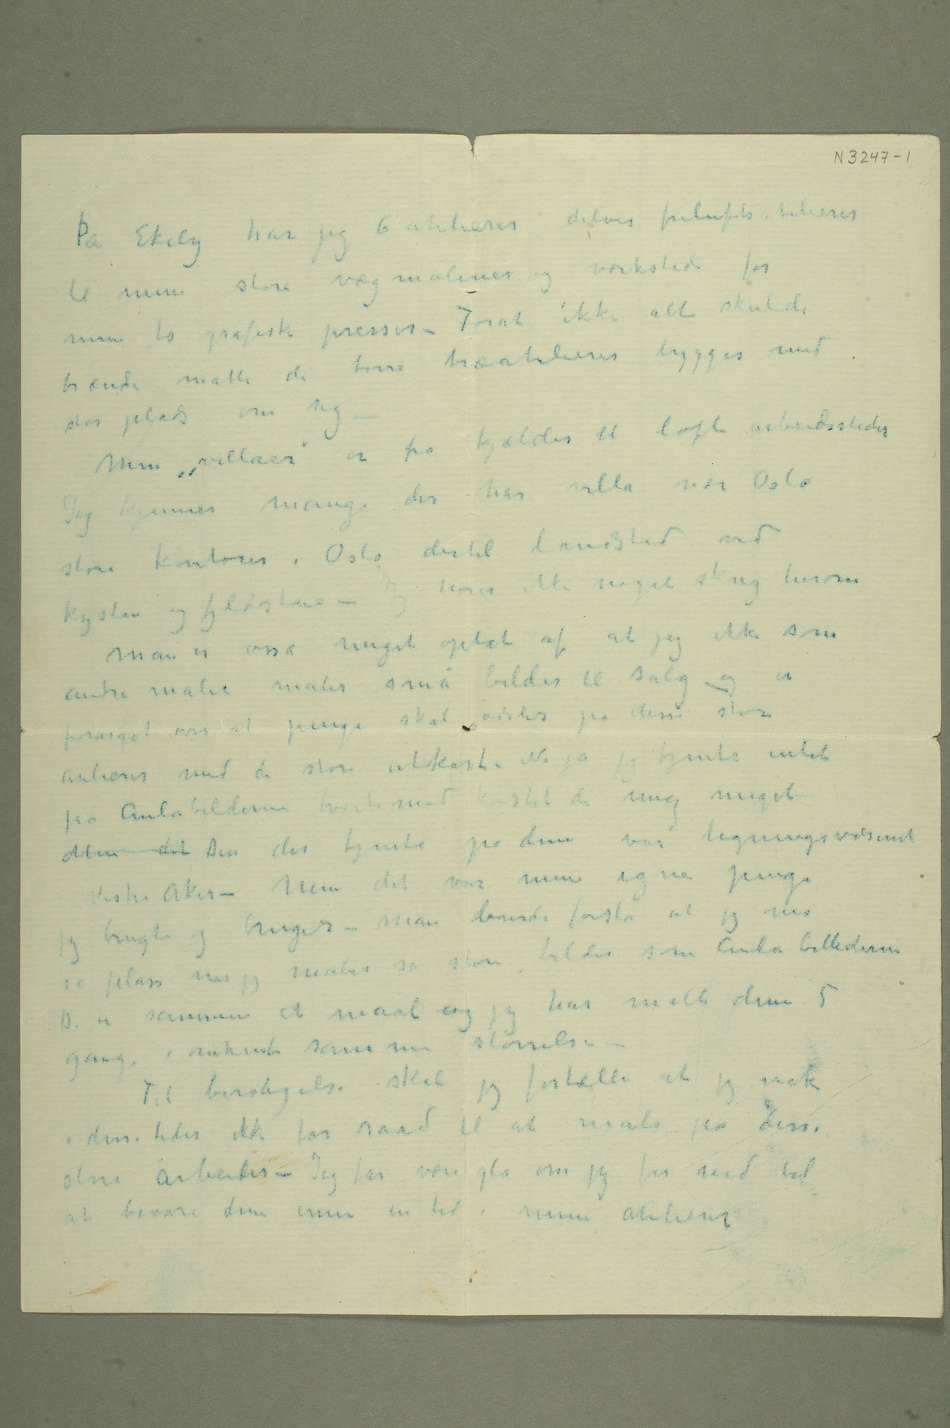 N 3247-1
På Ekely har jeg 6 atelierer delvis friluftsatelierer
til mine store vægmalerier og værksted for
mine to grafiske presser – Forat ikke alt skulde
brænde måtte de store træatelierer bygges med
stor plads om sig –
Mine „villaer" er fra kjælder til loft arbeidssteder
Jeg kjenner mange der har villa nær Oslo
store kontorer i Oslo dertil landsted ved
kysten og fjeldstue – Jeg hører ikke noget skrig herom
Man er osså meget optat af at jeg ikke som
andre malere maler små bilder til salg og er
forarget over at penge skal ødsles på disse store
atelierer med de store utkast. Nå ja jeg tjente intet
på Aulabilderne tvertimod kostet de mig meget
Men det Den der tjente på dem var ligningsvæsenet
Vestre Aker – Men det var mine egne penge
jeg brugte og bruger – Man burde forstå at jeg må
ha plass når jeg maler så store bilder som Aulabillederne
De er sammen et maal og jeg har malt dem 5
gange i omtrent samme størrelse –
Til beroligelse skal jeg fortælle at jeg nok
i disse tider ikke får raad til at male på disse
store arbeider – Jeg får være gla om jeg får raad til
at bevare dem ennu en tid i mine atelierer